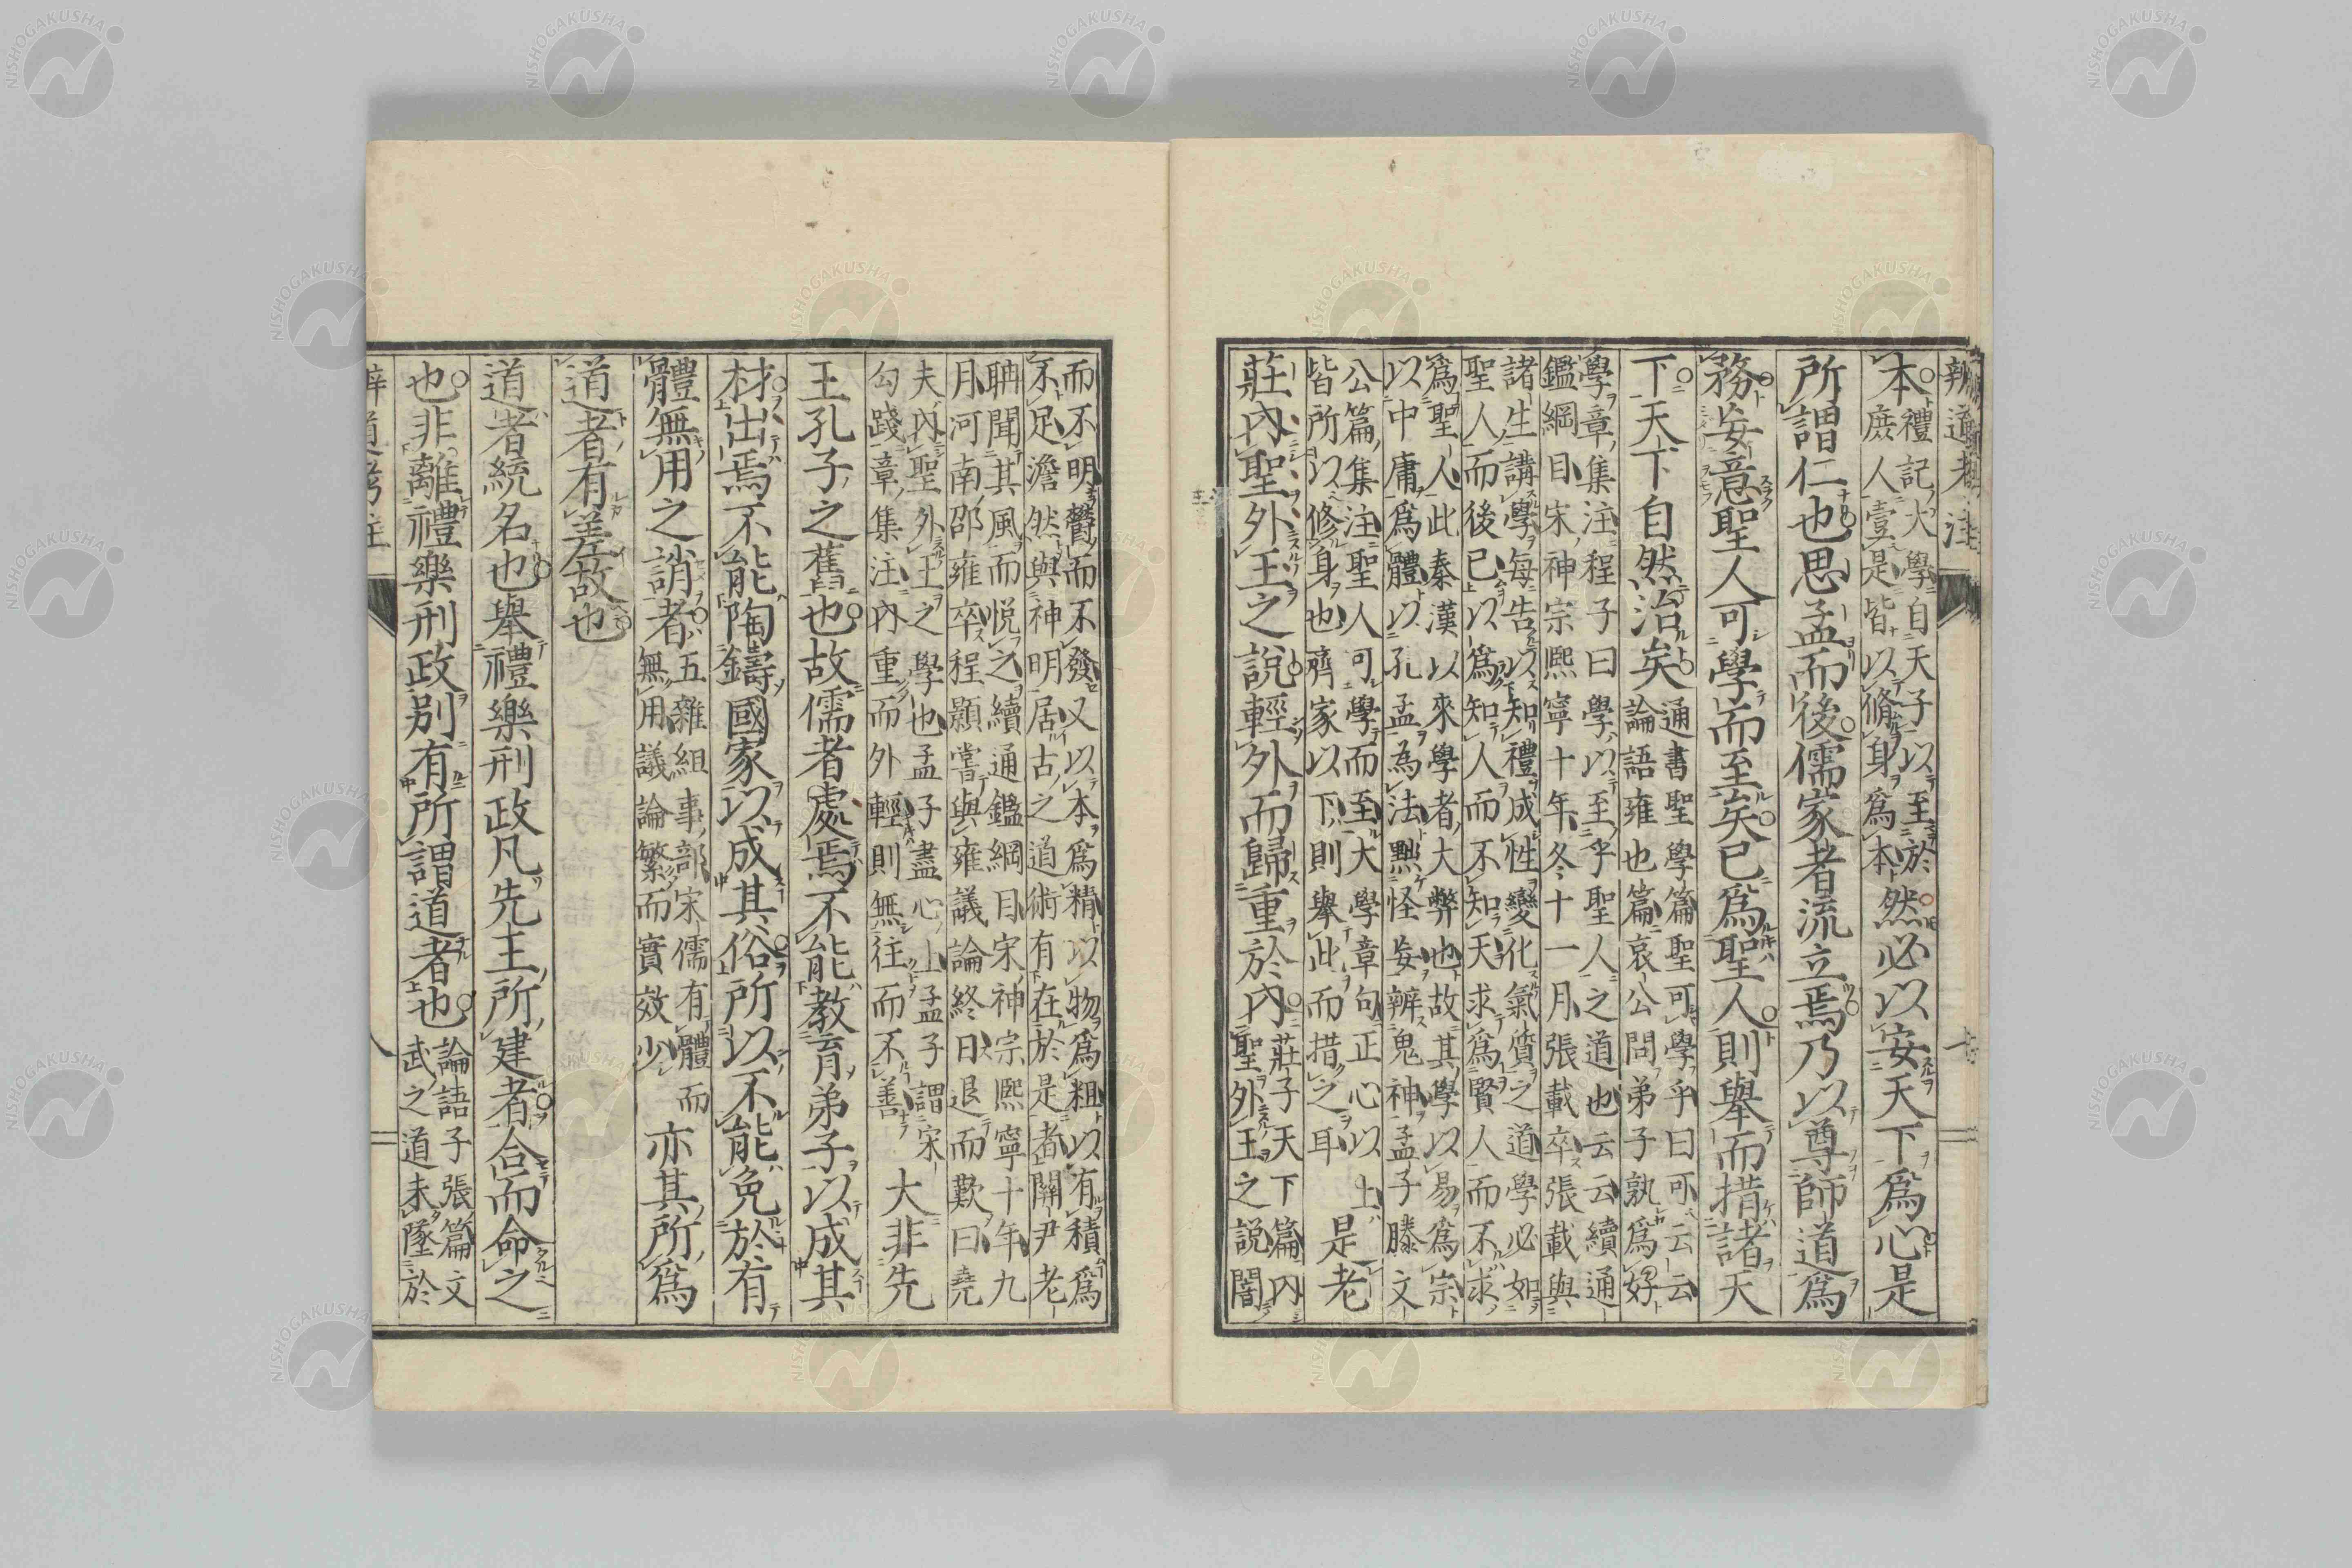 辨道考注
本禮記大學自天子以至於
庶人壹是皆以脩身爲本然必以安天下爲心是
所謂仁也思孟而後儒家者流立焉乃以尊師道爲
務妄意聖人可學而至矣已爲聖人則舉而措諸天
下天下自然治矣通書聖學篇聖可學乎曰可云云
論語雍也篇哀公問弟子孰爲好
學章集注程子曰學以至乎聖人之道也云云續通
鑑綱目宋神宗熙寧十年冬十一月張載卒張載與
諸生講學每告以知禮成性變化氣質之道學必如
聖人而後已以爲知人而不知天求爲賢人而不求
爲聖人此秦漢以來學者大弊也故其學以易爲宗
以中庸爲體以孔孟為法黜怪妄辨鬼神孟子滕文
公篇集注聖人可學而至大學章句正心以上
皆所以修身也齊家以下則舉此而措之耳是老
莊內聖外王之說輕外而歸重於內莊子天下篇內
聖外王之說闇
而不明鬱而不發又以本爲精以物爲粗以有積爲
不足澹然與神明居古之道術有在於是者關尹老
聃聞其風而悅之續通鑑綱目宋神宗熙寧十年九
月河南邵雍卒程顥嘗與雍議論終日退而歎曰堯
夫內聖外王之學也孟子盡心上孟子謂宋
勾踐章集注內重而外輕則無往而不善大非先
王孔子之舊也故儒者處焉不能教育弟子以成其
材出焉不能陶鑄國家以成其俗所以不能免於有
體無用之誚者五雜組事部宋儒有體而
無用議論繁而實效少亦其所爲
道者有差故也
道者統名也舉禮樂刑政凡先王所建者合而命之
也非離禮樂刑政別有所謂道者也論語子張篇文
武之道未墜於
辨道考注
八